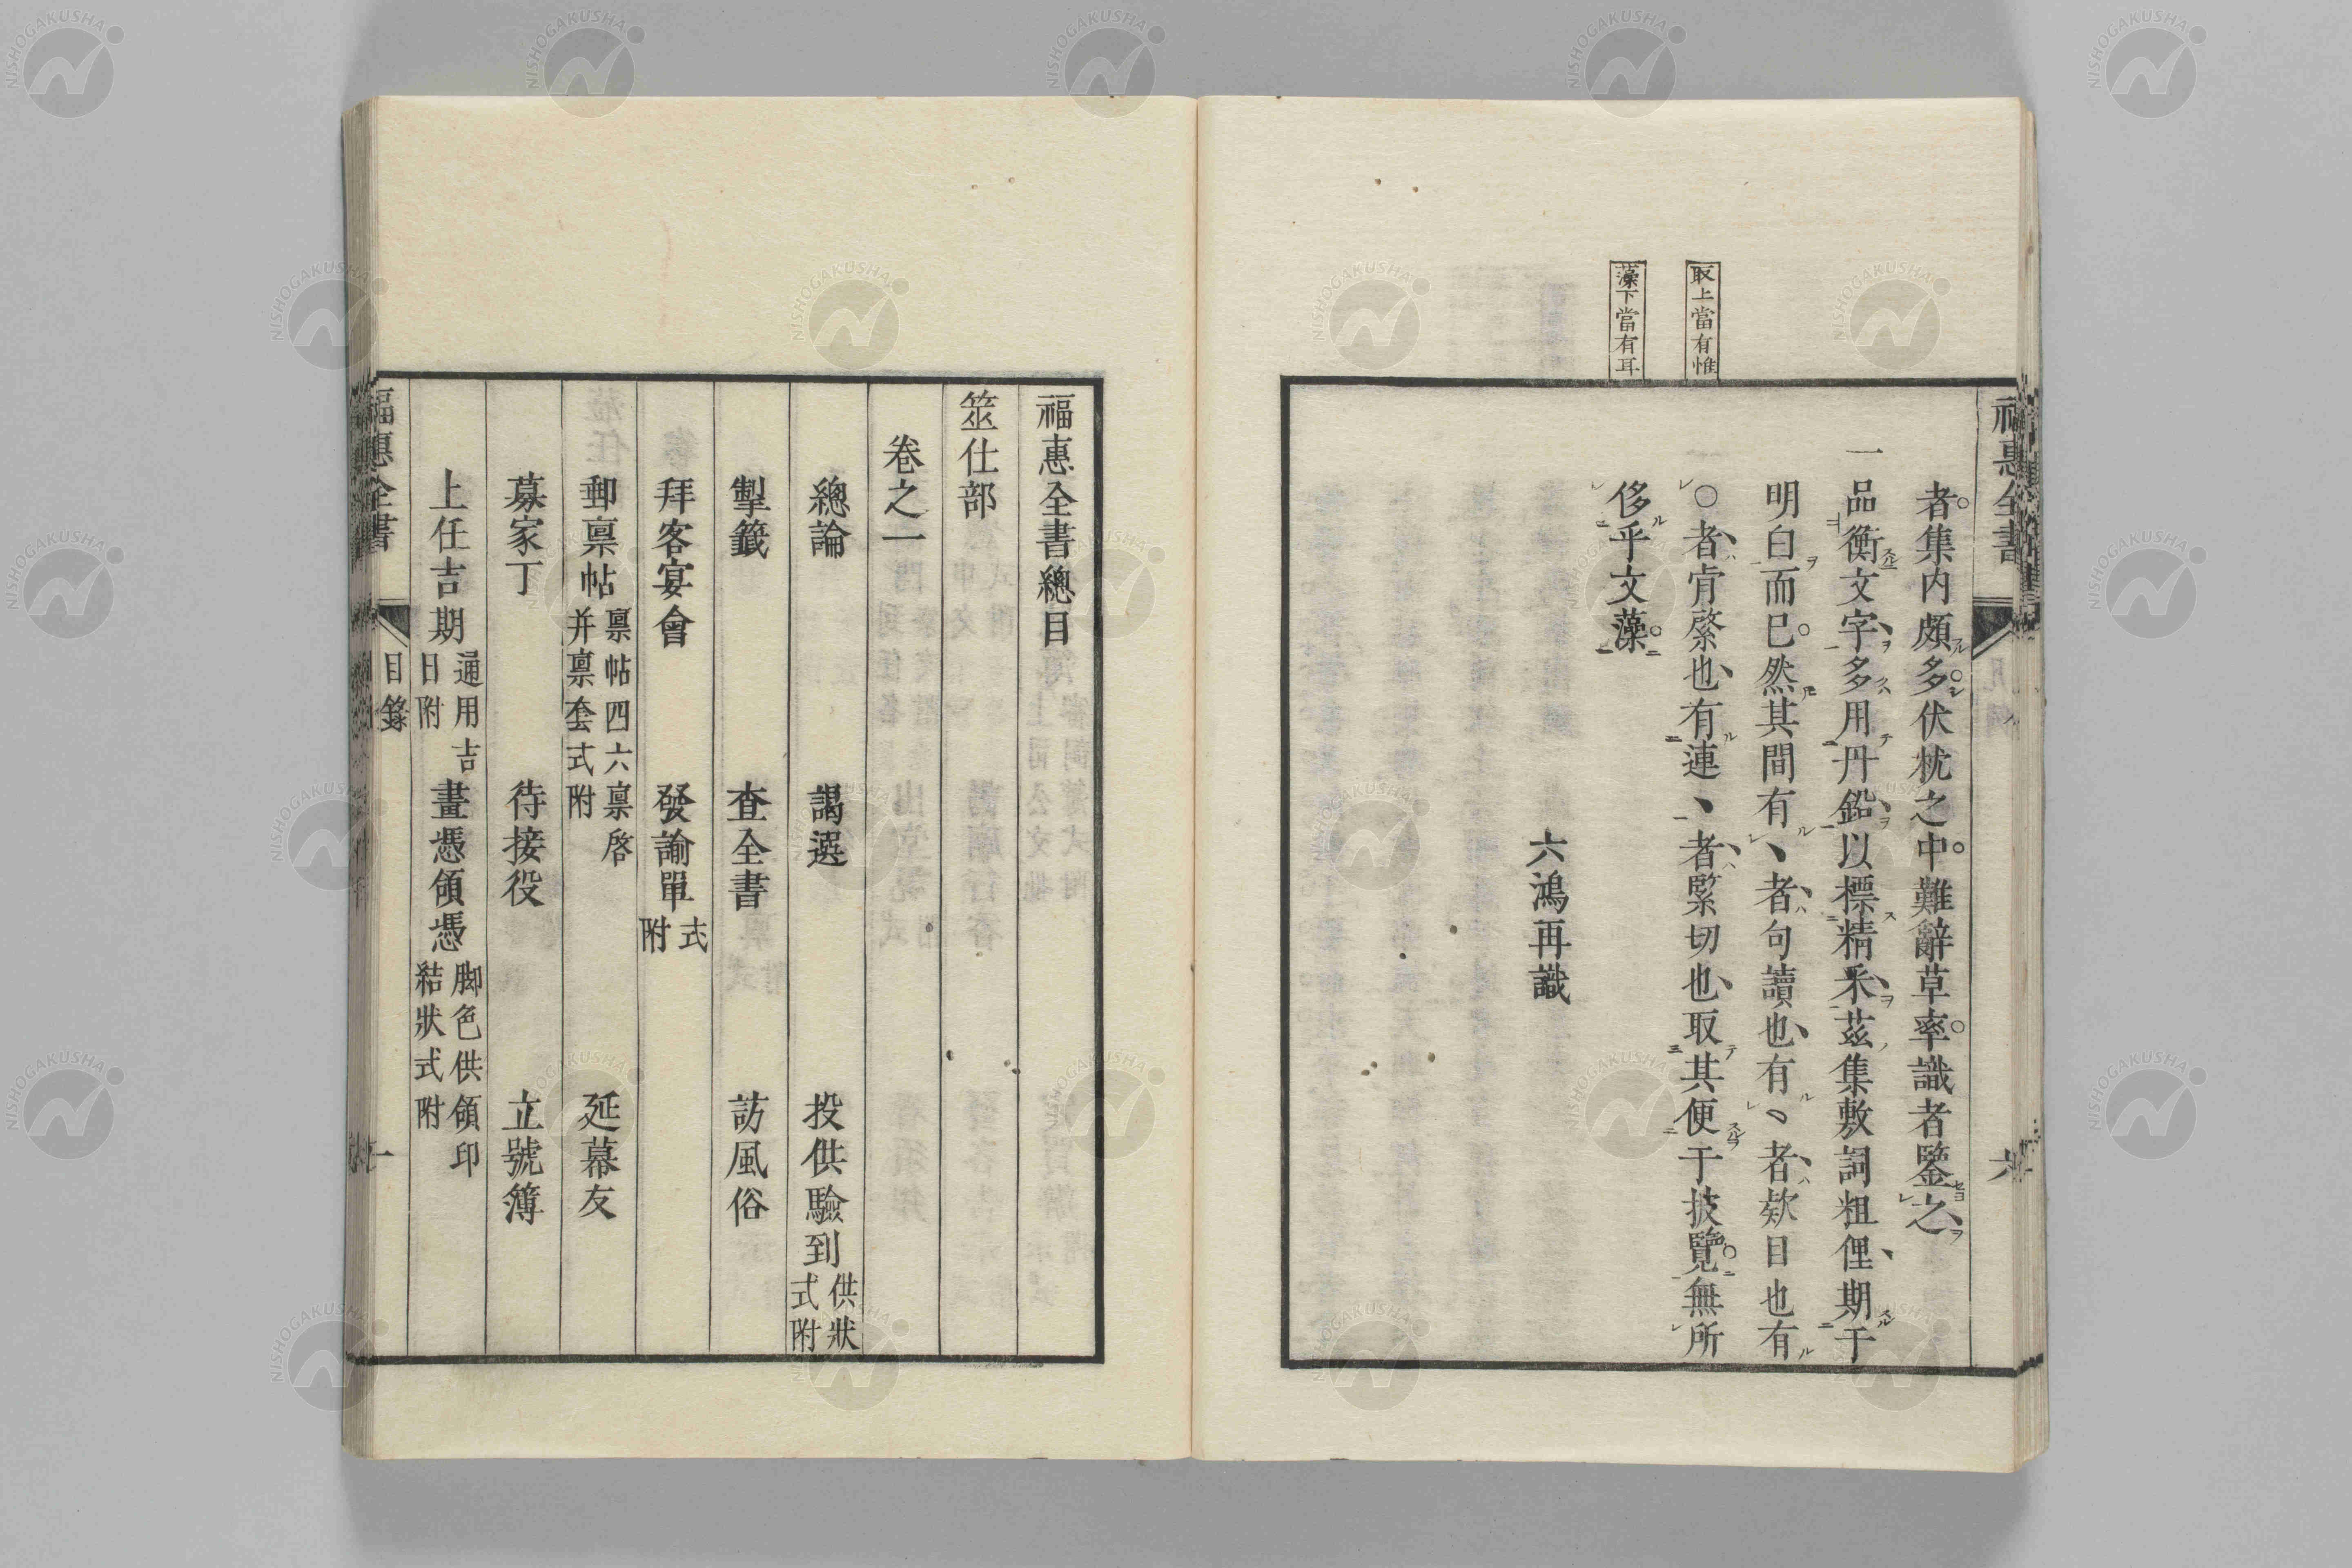 福惠全書
者集内頗多伏枕之中難辭草率識者鑒之
一品衡文字多用丹鉛以標精釆茲集敷詞粗俚期于
明白而已然其間有丶者句讀也有丶者欵目也有
〇者肯綮也有連丶者緊切也取其便于披覽無所
侈乎文藻
六鴻再識
取上當有惟
藻下當有耳
六
福惠全書總目
筮仕部
卷之一
總論 謁選 投供驗到 供狀式附
掣籤 查全書 訪風俗
拜客宴會 發諭單 式附
郵稟帖 稟帖四六稟啓并稟套式附 延幕友
募家丁 待接役 立號簿
上任吉期 通用吉日附 畫憑領憑 脚色供領印結狀式附
福惠全書 目錄 一
NISHOGAKUSHA